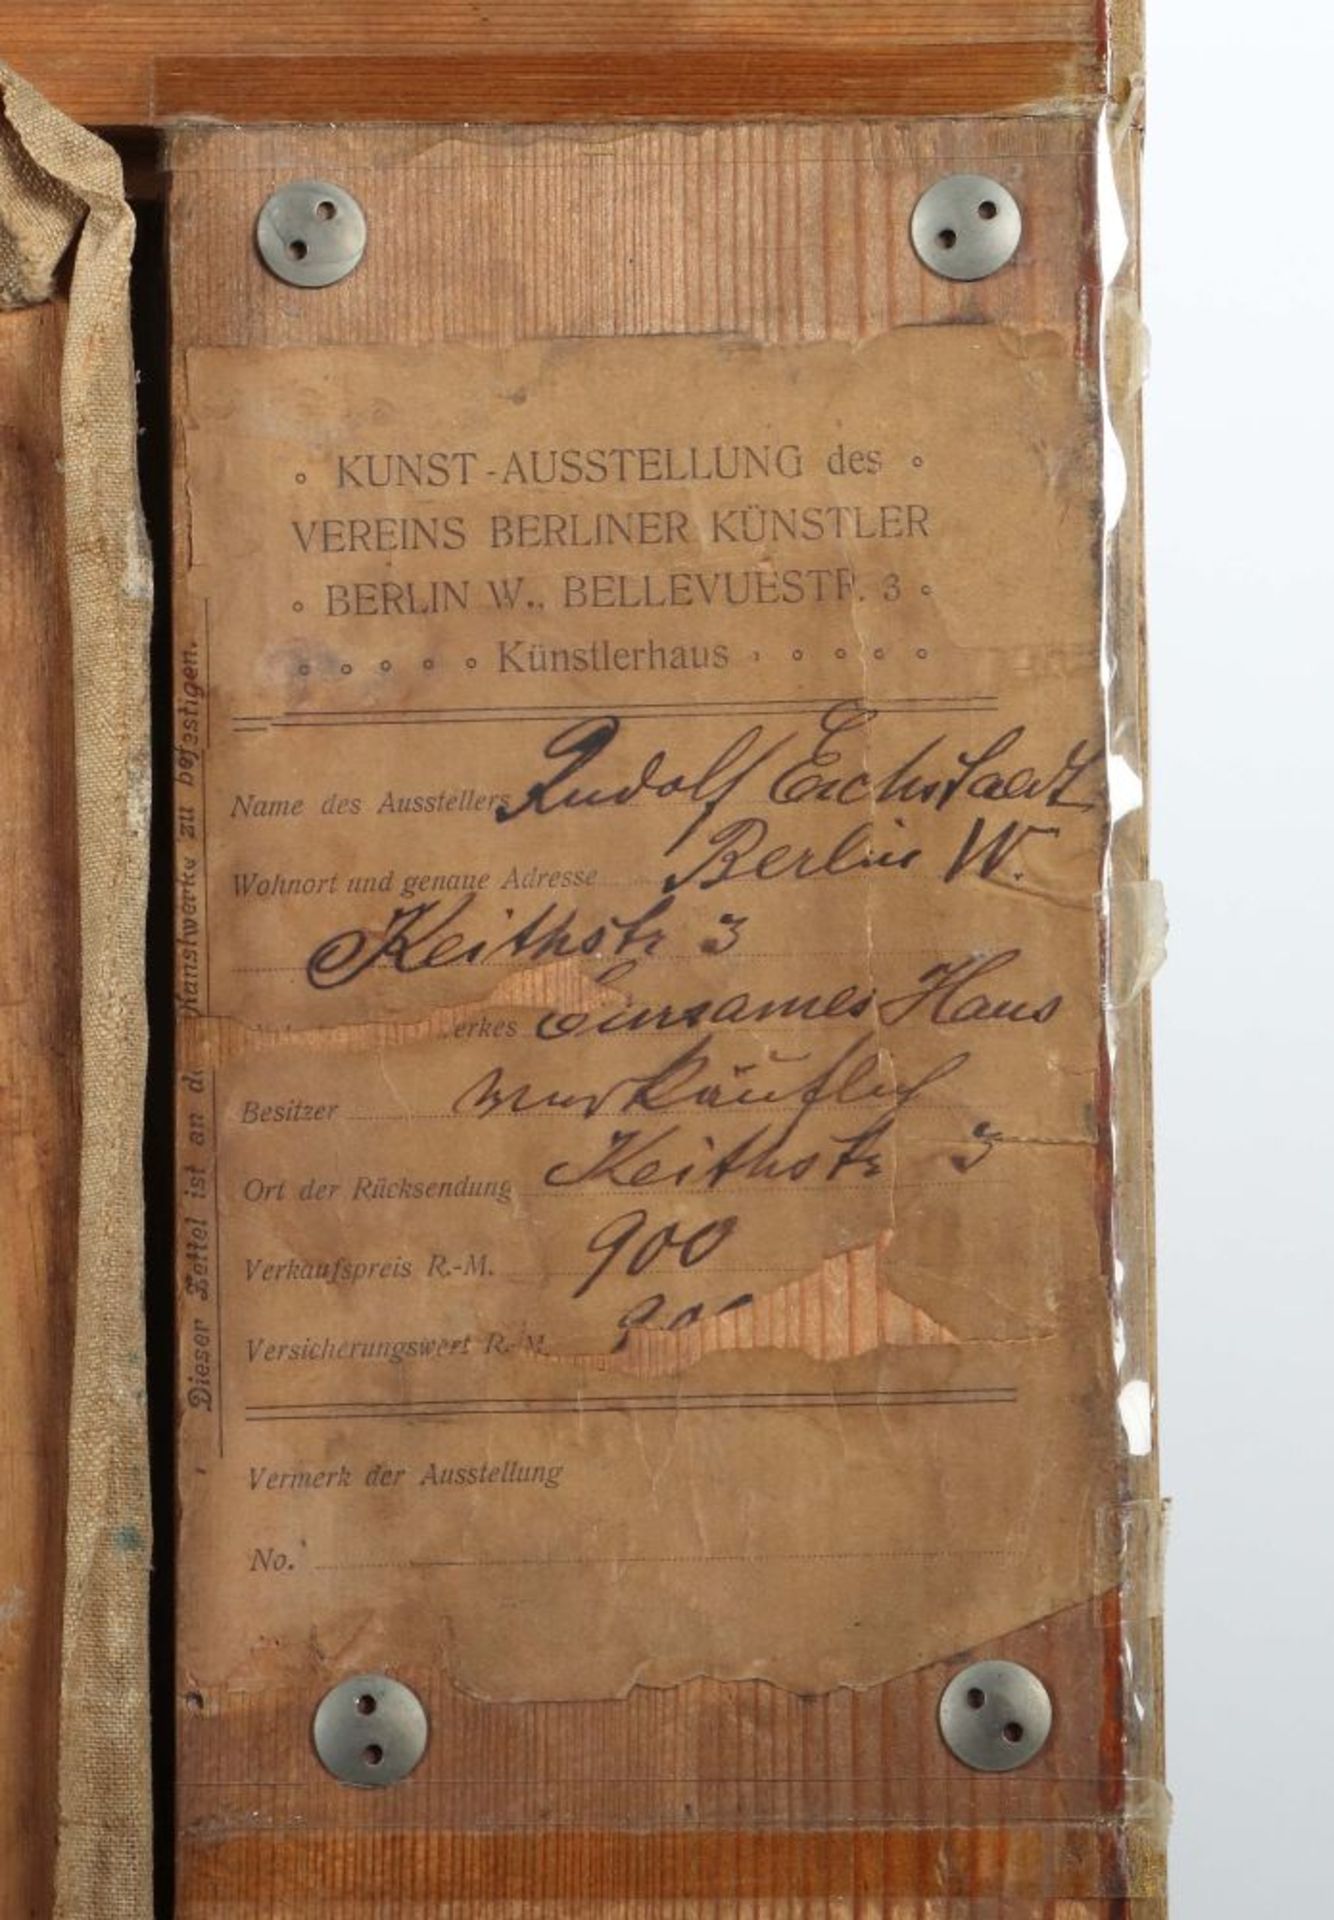 KUNST-AUSSTELLUNG des
VEREINS BERLINER KÜNSTLER
BERLIN W., BELLEVUESTR. 3
Künstlerhaus
Name des Ausstellers Rudolf Eichstaedt
Wohnort und genaue Adresse Berlin W.
Keithstr 3
erkes Einsames Haus
Besitzer verkäuflich
Ort der Rücksendung Keithstr 3
Verkaufspreis R.-M. 900
Versicherungswert R.-M. 900
Vermerk der Ausstellung
No.
Dieser Zettel ist an de Kunstwerke zu befestigen.